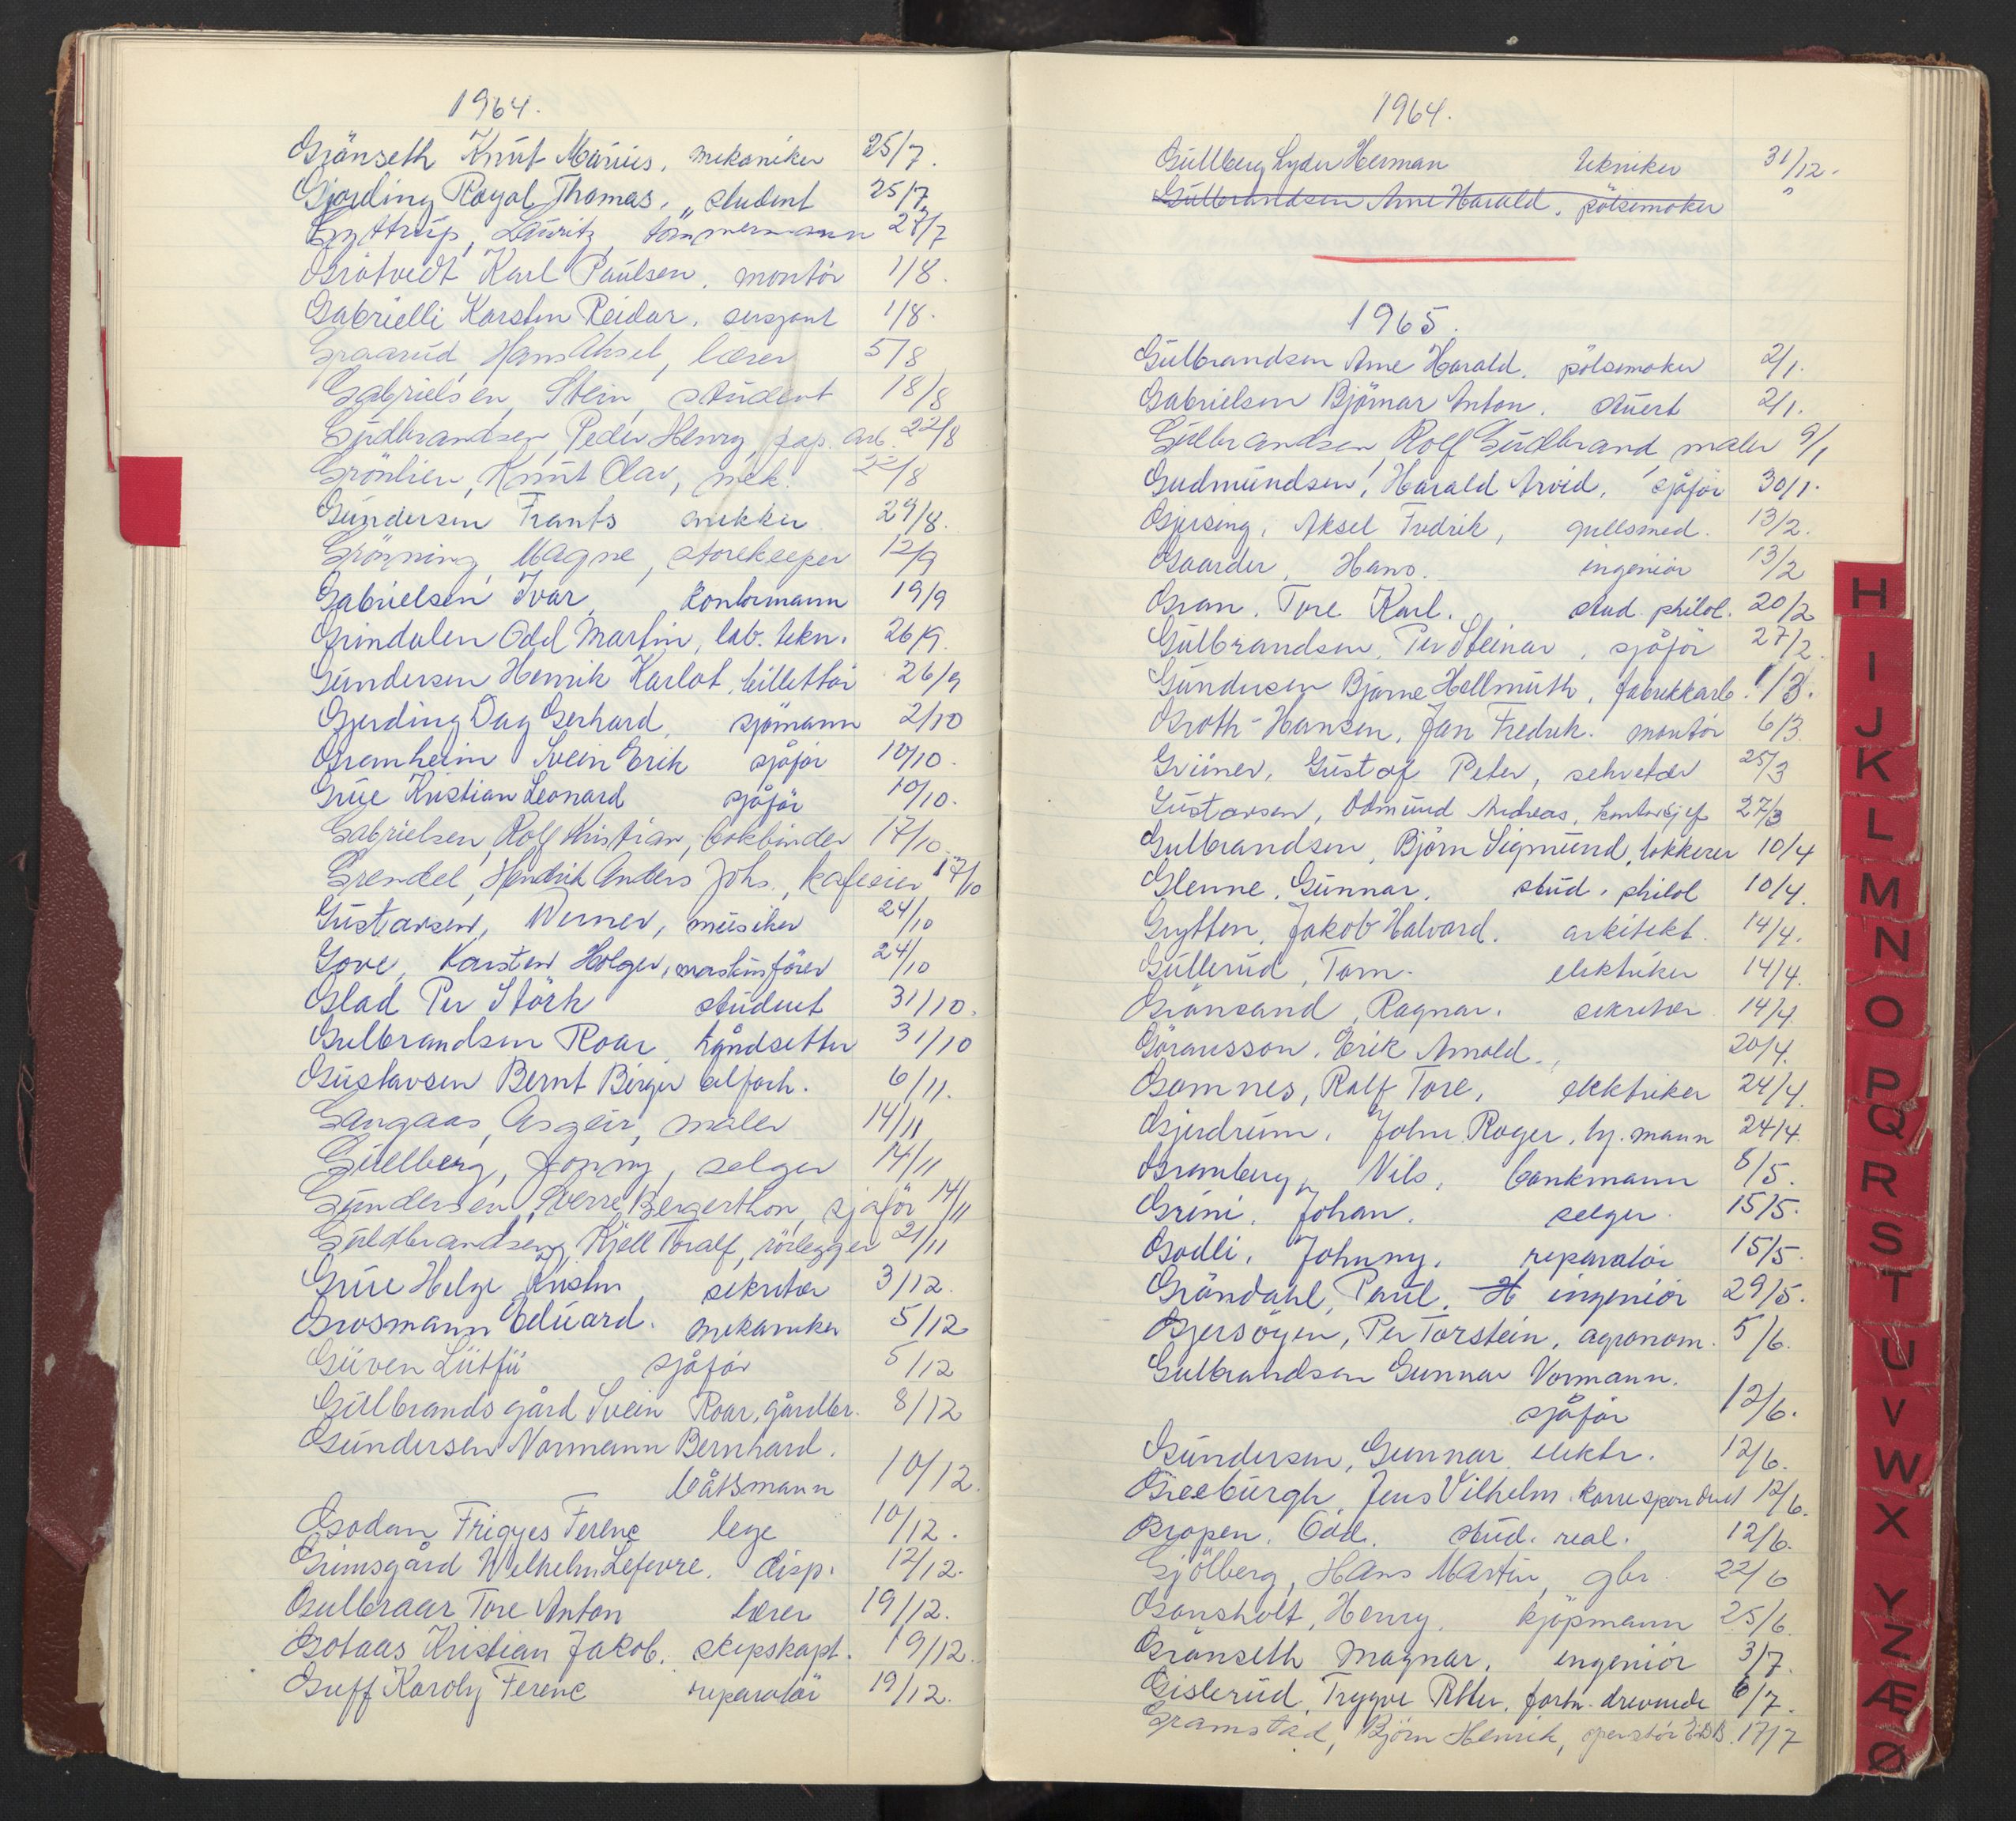 1964.
Grönseth Knut Marius, mekaniker 25/7.
Gjording Royal Thomas, student 25/7.
Gyttrup, Lauritz, tömmermann 28/7
Gråtvedt Karl Paulsen, montör 1/8.
Gabrielli Karsten Reidar, sersjant 1/8.
Graarud, Hans Aksel, lærer 5/8
Gabrielsen, Stein, student 18/8
Gudbrandsen, Peder Henry, pap. arb. 22/8
Grönlien, Knut Olav, mek. 22/8
Gundersen Frants snekker 29/8.
Grönning, Magne, storekeeper 12/9
Gabrielsen Ivar, kontormann 19/9
Grindalen Odd Martin, lab. tekn. 26/9.
Gundersen Henrik Karlot, billettör 26/9
Gjerding Dag Gerhard, sjömann 2/10
Gramheim Svein Erik sjåför 10/10.
Grue Kristian Leonard sjåför 10/10.
Gabrielsen, Rolf Kristian, bokbinder 17/10
Grendel, Hendrik Anders Johs., kafeeier 17/10
Gustavsen, Werner, musiker 24/10
Gove, Karsten Holger, maskinförer 24/10
Glad Per Störk student 31/10.
Gulbrandsen Roar, håndsetter 31/10
Gustavsen Bernt Birger elfork. 6/11.
Gangaas, Asgeir, maler 14/11
Gullberg, Jonny, selger 14/11
Gundersen, Sverre Bergerthon, sjåför 14/11
Guldbrandsen, Kjell Toralf, rörlegger 21/11
Grue Helge Kristen, sekretær 3/12.
Grosmann Eduard. mekaniker 5/12
Güven Lütfü sjåför 5/12
Gulbrandsgård Svein Roar, gårdbr. 8/12
Gundersen Normann Bernhard.
båtsmann 10/12.
Godan Frigyes Ferenc lege 10/12.
Grimsgård Wilhelm Lefevre. disp. 12/12.
Gulbraar Tore Anton lærer 19/12.
Gotaas Kristian Jakob. skipskapt. 19/12.
Guff Karoly Ferenc reparatör 19/12.
1964.
Gullberg Lyder Herman tekniker 31/12.
Gulbrandsen Arne Harald, pölsemaker "
1965.
Gulbrandsen Arne Harald, pölsemaker 2/1.
Gabrielsen Björnar Anton. stuert 2/1.
Gulbrandsen, Rolf Gudbrand, maler 9/1
Gudmundsen, Harald Arvid, sjåför 30/1.
Gjersing, Aksel Fredrik, gullsmed. 13/2.
Gaarder, Hans. ingeniör 13/2
Gran, Tore Karl. stud. philol. 20/2
Gulbrandsen, Per Steinar, sjåför 27/2.
Gundersen Bjarne Hellmuth, fabrikkarb. 1/3.
Groth-Hansen, Jan Fredrik. montör 6/3.
Grüner, Gustaf Peter, sekretær 25/3
Gustavsen, Odmund Andreas, kontorsjef 27/3
Gulbrandsen, Björn Sigmund, lakkerer 10/4
Glenne, Gunnar, stud. philol 10/4.
Grytten, Jakob Halvard. arkitekt. 14/4.
Gullerud, Tom. elektriker 14/4.
Grönsand, Ragnar. sekretær 14/4.
Göransson, Erik Arnold., 20/4.
Gomnes, Ralf Tore, elektriker 24/4.
Gjerdrum, John Roger, hj. mann 24/4.
Gramberg, Nils, bankmann 8/5.
Grini, Johan. selger 15/5.
Godli, Johnny. reparatör 15/5.
Gröndahl, Paul. H ingeniör 29/5.
Gjersöyen, Per Torstein, agronom. 5/6.
Gulbrandsen Gunnar Normann.
sjåför 12/6.
Gundersen, Gunnar elektr. 12/6.
Greeburgh, Jens Vilhelm. korrespondent 12/6.
Gropen, Odd. stud. real. 12/6.
Gjölberg, Hans Martin, gbr. 22/6
Gansholt, Henry. kjöpmann 25/6.
Grönseth Magnar, ingeniör 3/7.
Gislerud, Trygve Petter, forhr. drivende 6/7.
Gramstad, Björn Henrik, operatör EDB. 17/7
H
I
J
K
L
M
N
O
P
Q
R
S
T
U
V
W
X
Y
Z
Æ
Ø